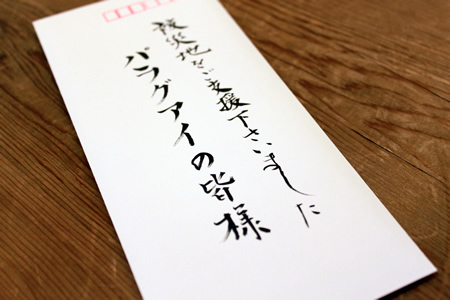 被災地をご支援下さいました
パラグアイの皆様